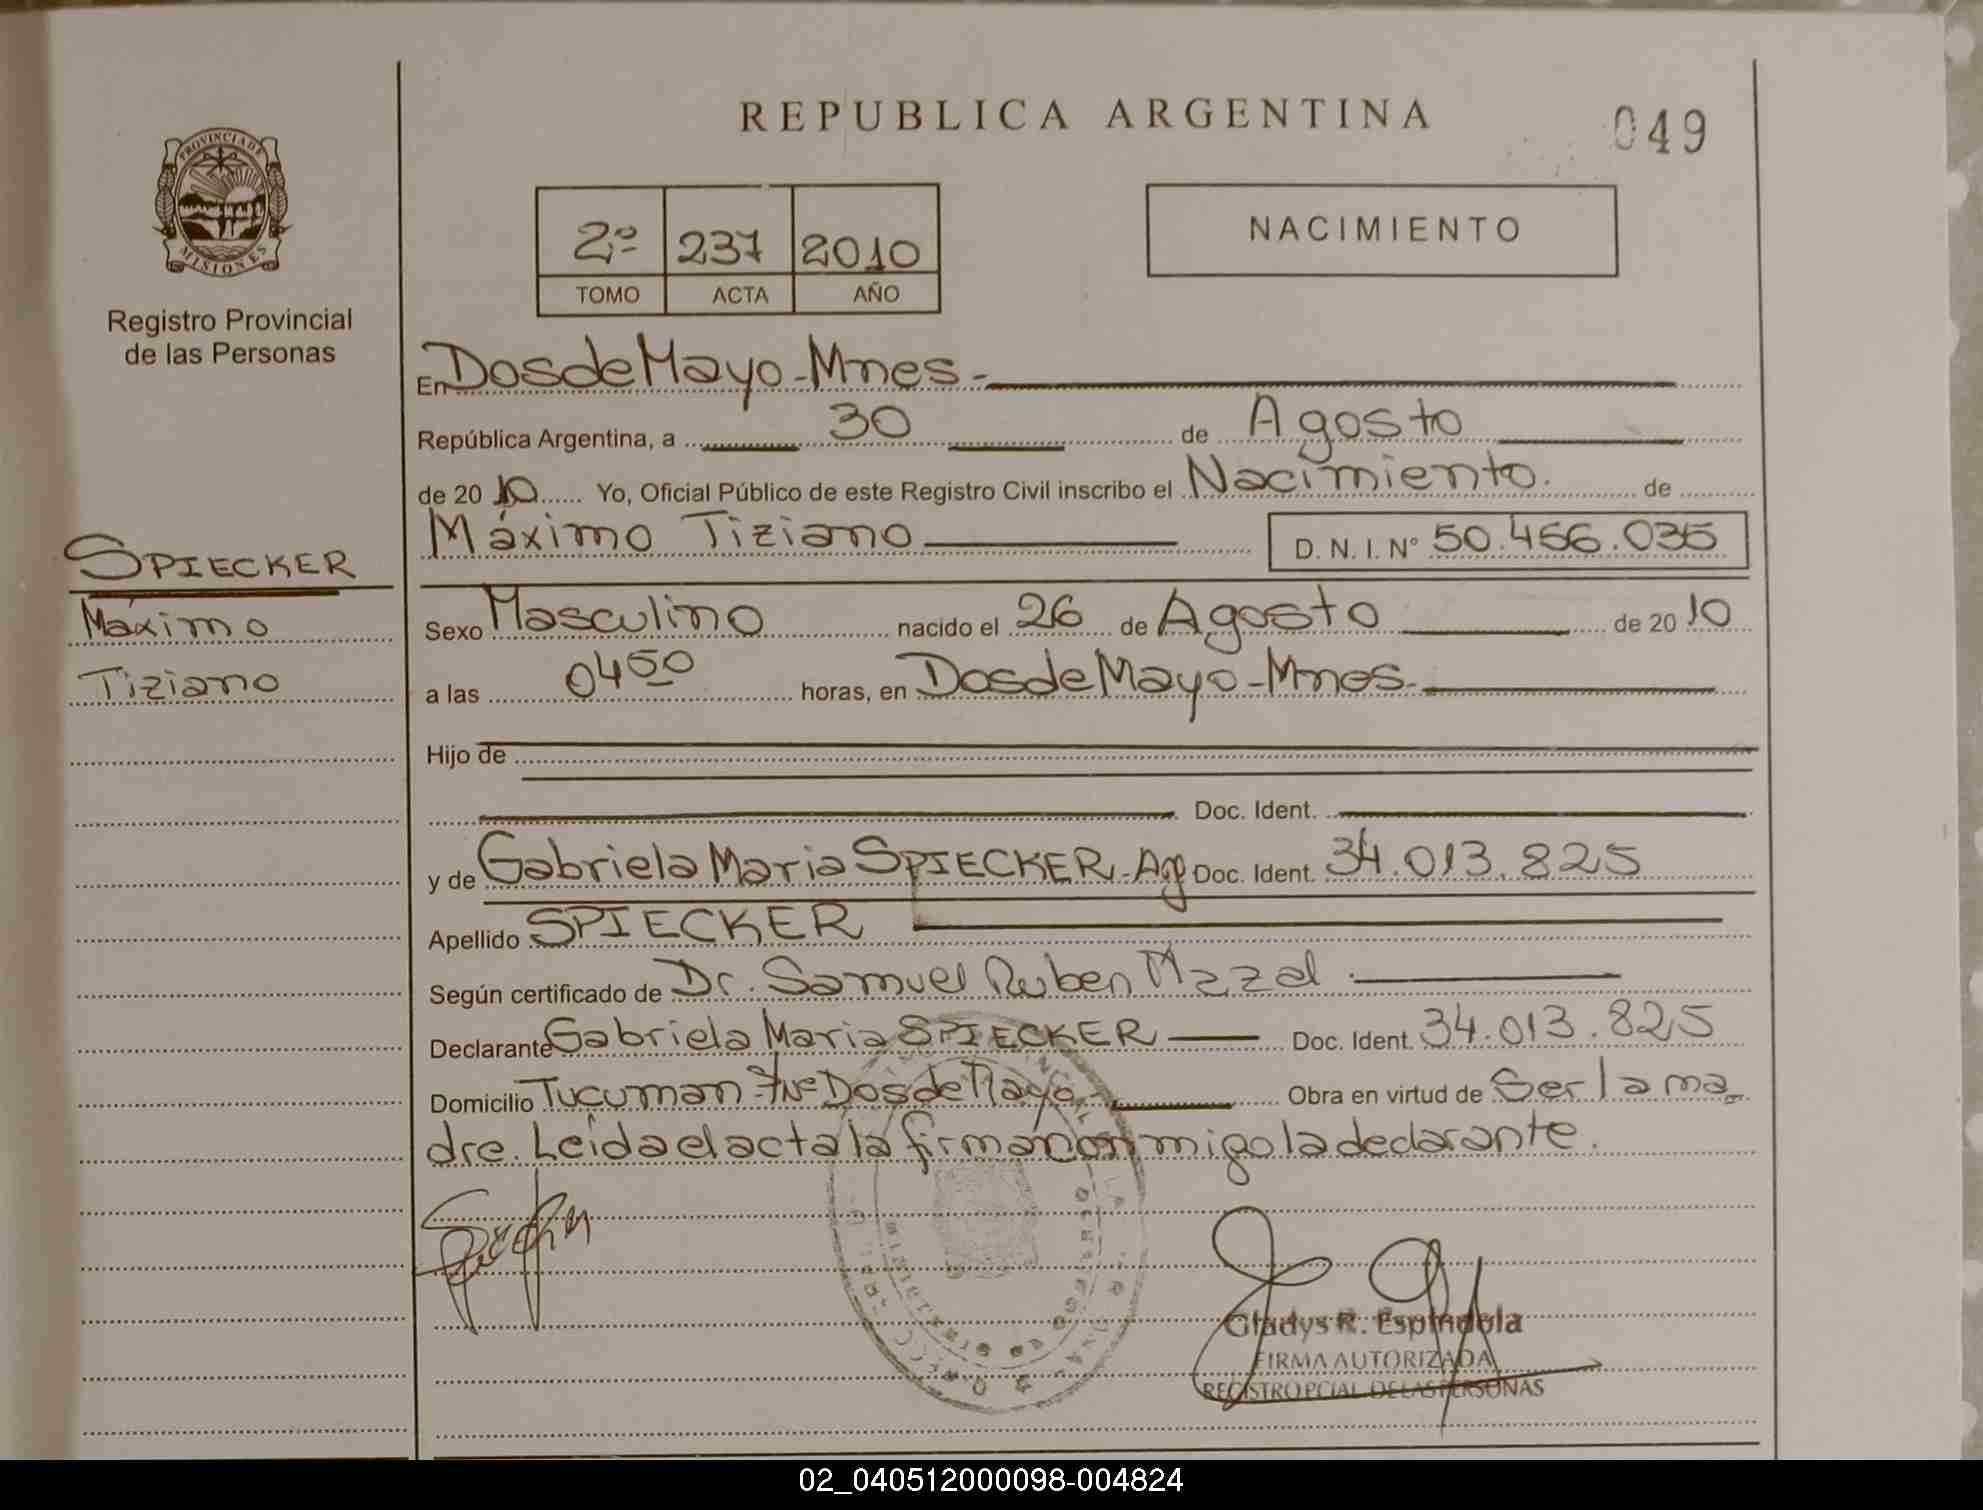 REPUBLICA ARGENTINA
049
PROVINCIA DE
MISIONES
Registro Provincial
de las Personas
2º 237 2010
TOMO ACTA AÑO
NACIMIENTO
En Dos de Mayo - Mnes -
República Argentina, a 30 de Agosto
de 20 10 Yo, Oficial Público de este Registro Civil inscribo el Nacimiento. de
Máximo Tiziano D. N. I. N° 50.456.035
SPIECKER
Máximo
Tiziano
Sexo Masculino nacido el 26 de Agosto de 20 10
a las 0450 horas, en Dos de Mayo - Mnes -
Hijo de
Doc. Ident.
y de Gabriela Maria SPIECKER - Ag Doc. Ident. 34.013.825
Apellido SPIECKER
Según certificado de Dr. Samuel Ruben
Declarante Gabriela Maria SPIECKER Doc. Ident. 34.013.825
Domicilio Tucuman Dos de Mayo Obra en virtud de Ser la ma-
dre. Leída el acta la firman conmigo la declarante.
Gladys R. Espindola
FIRMA AUTORIZADA
REGISTRO PCIAL DE LAS PERSONAS
02_040512000098-004824